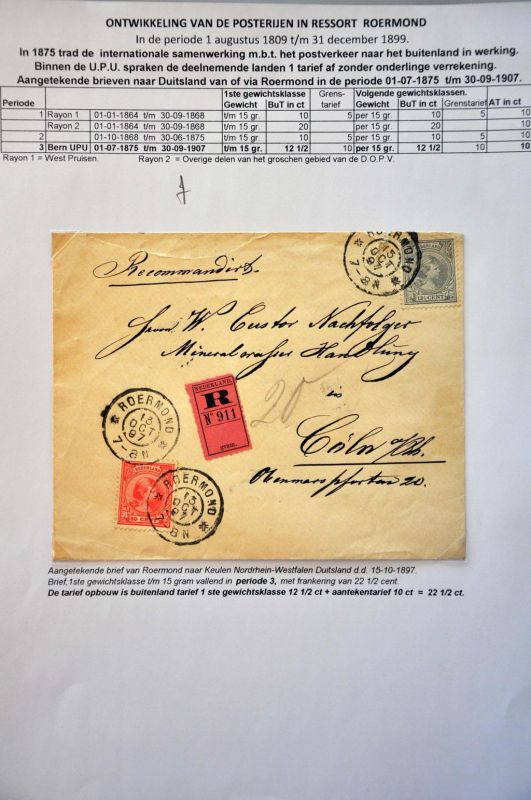 ONTWIKKELING VAN DE POSTERIJEN IN RESSORT ROERMOND
In de periode 1 augustus 1809 t/m 31 december 1899.
In 1875 trad de internationale samenwerking m.b.t. het postverkeer naar het buitenland in werking.
Binnen de U.P.U. spraken de deelnemende landen 1 tarief af zonder onderlinge verrekening.
Aangetekende brieven naar Duitsland van of via Roermond in de periode 01-07-1875 t/m 30-09-1907.
1ste gewichtsklasse Grens- Volgende gewichtsklassen.
Periode Gewicht BuT in ct tarief Gewicht BuT in ct Grenstarief AT in ct
1 Rayon 1 01-01-1864 t/m 30-09-1868 t/m 15 gr. 10 5 per 15 gr. 10 5 10
Rayon 2 01-01-1864 t/m 30-09-1868 t/m 15 gr. 20 per 15 gr. 20 10
2 01-10-1868 t/m 30-06-1875 t/m 15 gr. 10 5 per 15 gr. 10 5 10
3 Bern UPU 01-07-1875 t/m 30-09-1907 t/m 15 gr. 12 1/2 10 per 15 gr. 12 1/2 10 10
Rayon 1 = West Pruisen. Rayon 2 = Overige delen van het groschen gebied van de D.O.P.V.
ROERMOND
15 OCT 97
7-8N
NEDERLAND
12½ CENT
Recommandirt.
Herrn W. Custor Nachfolger
Mineralwasser Handlung
in
Cöln a/Rh.
Obenmarspforten 20.
NEDERLAND.
R
No 911
20
ROERMOND
13 OCT 97
7-8N
NEDERLAND
10 CENT
ROERMOND
13 OCT 97
7-8N
Aangetekende brief van Roermond naar Keulen Nordrhein-Westfalen Duitsland d.d. 15-10-1897.
Brief,1ste gewichtsklasse t/m 15 gram vallend in periode 3, met frankering van 22 1/2 cent.
De tarief opbouw is buitenland tarief 1 ste gewichtsklasse 12 1/2 ct + aantekentarief 10 ct = 22 1/2 ct.